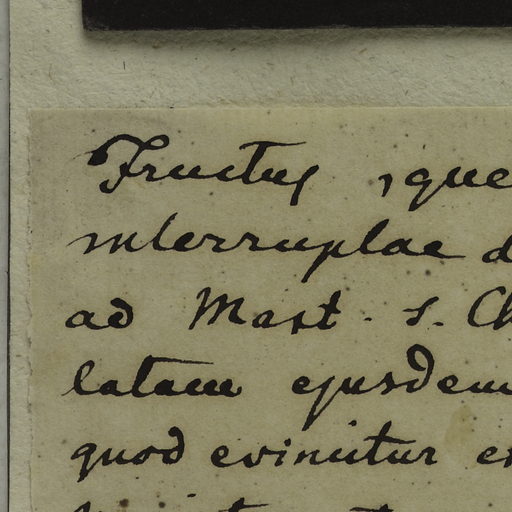 Fructus, que
interruptae d
ad Mast. s. Ch
latam ejusdem
quod evincitur e